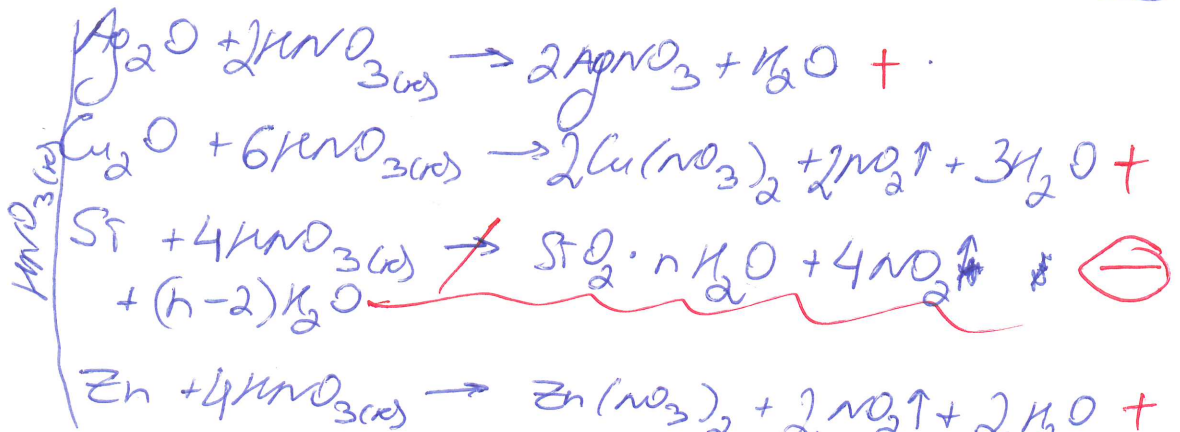 HNO₃(к)
Ag₂O + 2HNO₃(к) → 2AgNO₃ + H₂O +
Cu₂O + 6HNO₃(к) → 2Cu(NO₃)₂ + 2NO₂↑ + 3H₂O +
Si + 4HNO₃(к) → SiO₂·nH₂O + 4NO₂↑ −
+ (n-2)H₂O
Zn + 4HNO₃(к) → Zn(NO₃)₂ + 2NO₂↑ + 2H₂O +